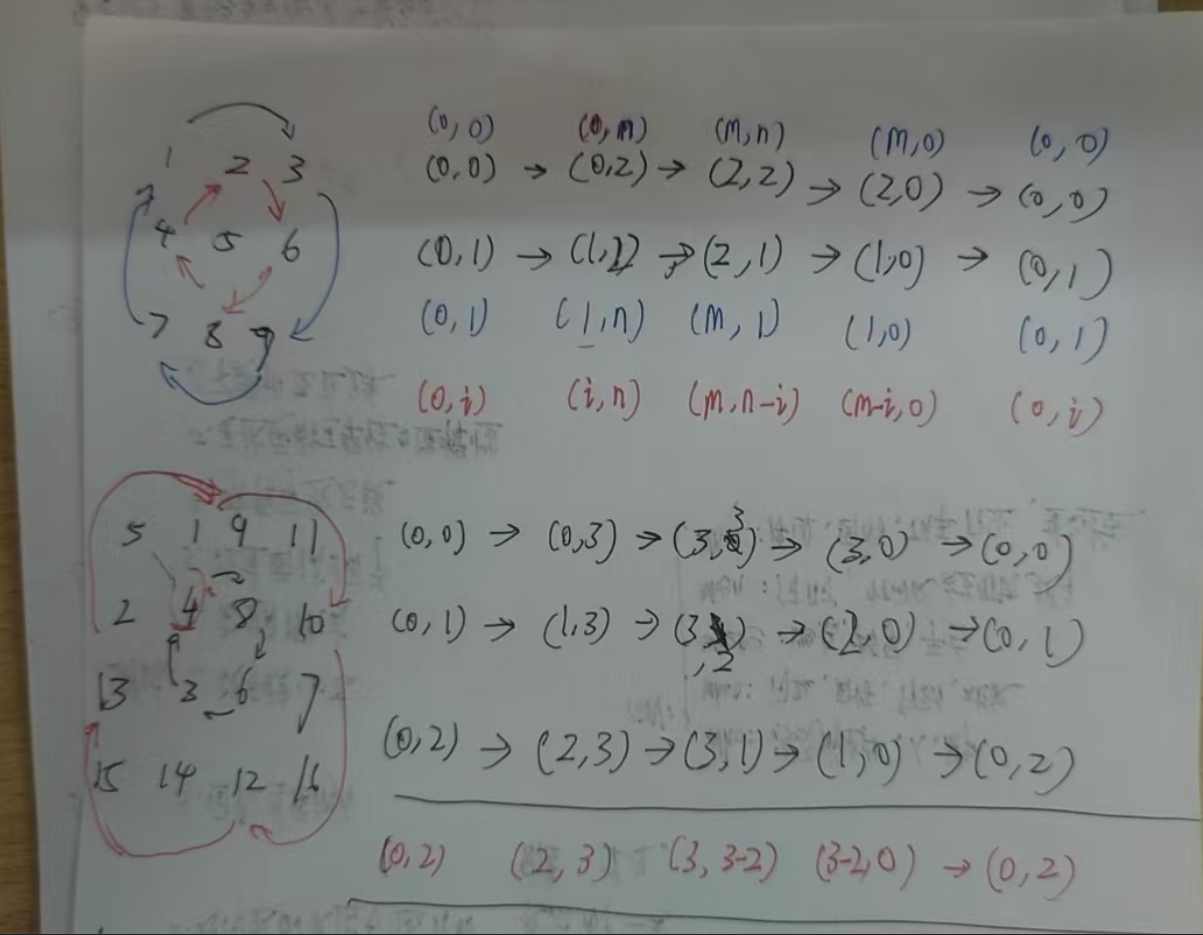 1 2 3
4 5 6
7 8 9
(0,0) (0,m) (m,n) (m,0) (0,0)
(0,0) → (0,2) → (2,2) → (2,0) → (0,0)
(0,1) → (1,2) → (2,1) → (1,0) → (0,1)
(0,1) (1,n) (m,1) (1,0) (0,1)
(0,i) (i,n) (m,n-i) (m-i,0) (0,i)
5 1 9 11
2 4 8 10
13 3 6 7
15 14 12 16
(0,0) → (0,3) → (3,3) → (3,0) → (0,0)
(0,1) → (1,3) → (3,2) → (2,0) → (0,1)
(0,2) → (2,3) → (3,1) → (1,0) → (0,2)
(0,2) (2,3) (3,3-2) (3-2,0) → (0,2)